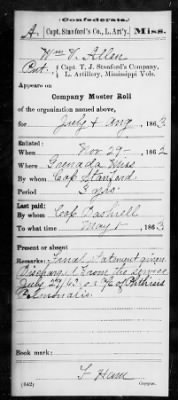 Confederate.
A. | Capt. Stanford's Co., L. Art'y. | Miss.
Wm V. Allen
Pvt., Capt. T. J. Stanford's Company,
L. Artillery, Mississippi Vols.
Appears on
Company Muster Roll
of the organization named above,
for July & Aug, 1863
Enlisted:
When Nov 29, 1862
Where Grenada Miss
By whom Cap Stanford
Period 3 yrs
Last paid:
By whom Cap
To what time May 1, 1863
Present or absent
Remarks: Final Statement given
Discharged from the service
July 29/63 of Phthisis
Pulmonalis.
Book mark:
F Ham
(642) Copyist.